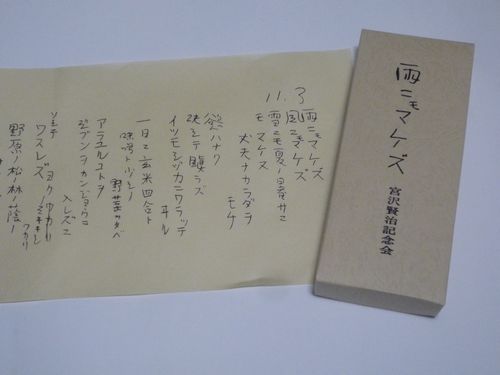 11.3
雨ニモマケズ
風ニモマケズ
雪ニモ夏ノ暑サニ
モマケヌ
丈夫ナカラダヲ
モチ
慾ハナク
決シテ瞋ラズ
イツモシヅカニワラッテ
ヰル
一日ニ玄米四合ト
味噌ト少シノ
野菜ヲタベ
アラユルコトヲ
ジブンヲカンジョウニ
入レズニ
ヨクミキキシワカリ
ソシテ
ワスレズ
野原ノ松ノ林ノ蔭ノ
雨ニモマケズ
宮沢賢治記念会